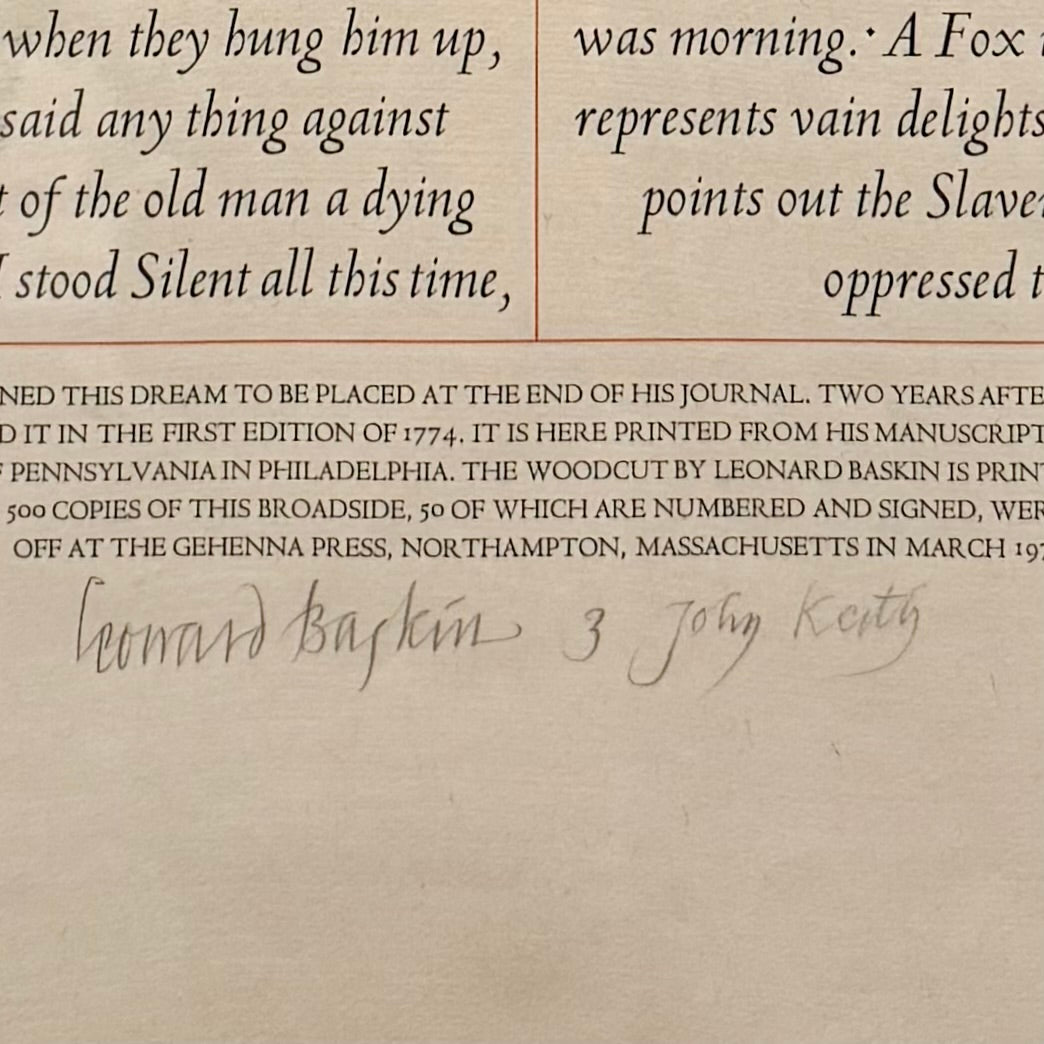 when they hung him up,
said any thing against
t of the old man a dying
I stood Silent all this time,
was morning. · A Fox
represents vain delights
points out the Slave
oppressed t
NED THIS DREAM TO BE PLACED AT THE END OF HIS JOURNAL. TWO YEARS AFTE
D IT IN THE FIRST EDITION OF 1774. IT IS HERE PRINTED FROM HIS MANUSCRIPT
F PENNSYLVANIA IN PHILADELPHIA. THE WOODCUT BY LEONARD BASKIN IS PRIN
500 COPIES OF THIS BROADSIDE, 50 OF WHICH ARE NUMBERED AND SIGNED, WER
OFF AT THE GEHENNA PRESS, NORTHAMPTON, MASSACHUSETTS IN MARCH 197
Leonard Baskin 3 John